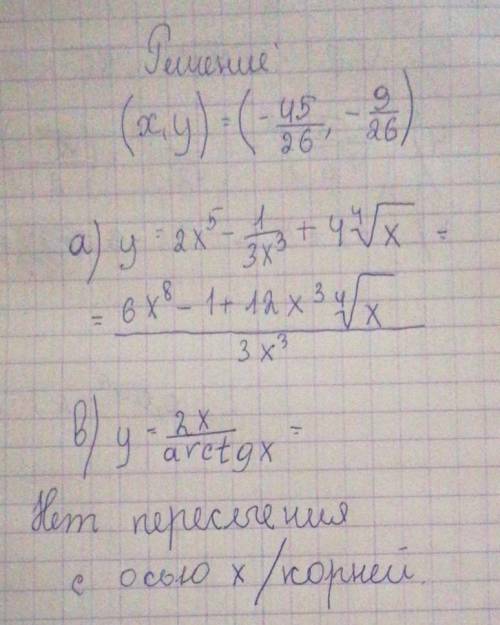 Решение
(x, y) = (-45/26, -9/26)
а) y = 2x⁵ - 1/3x³ + 4⁴√x =
= 6x⁸ - 1 + 12x³ ⁴√x / 3x³
в) y = 2x/arctgx =
Нет пересечения
с осью x/корней.